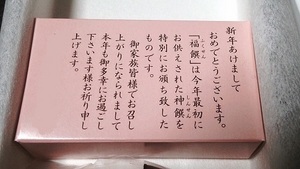 新年あけまして
おめでとうございます。
「福饌」は今年最初に
ふくせん
お供えされた神饌を
しんせん
特別にお頒ち致した
ものです。
御家族皆様でお召し
上がりになられまして
本年も御多幸にお過ごし
下さいます様お祈り申し
上げます。